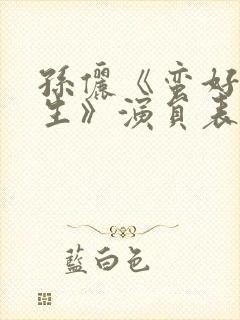 孫儷《蛮好
生》演員表
藍白色